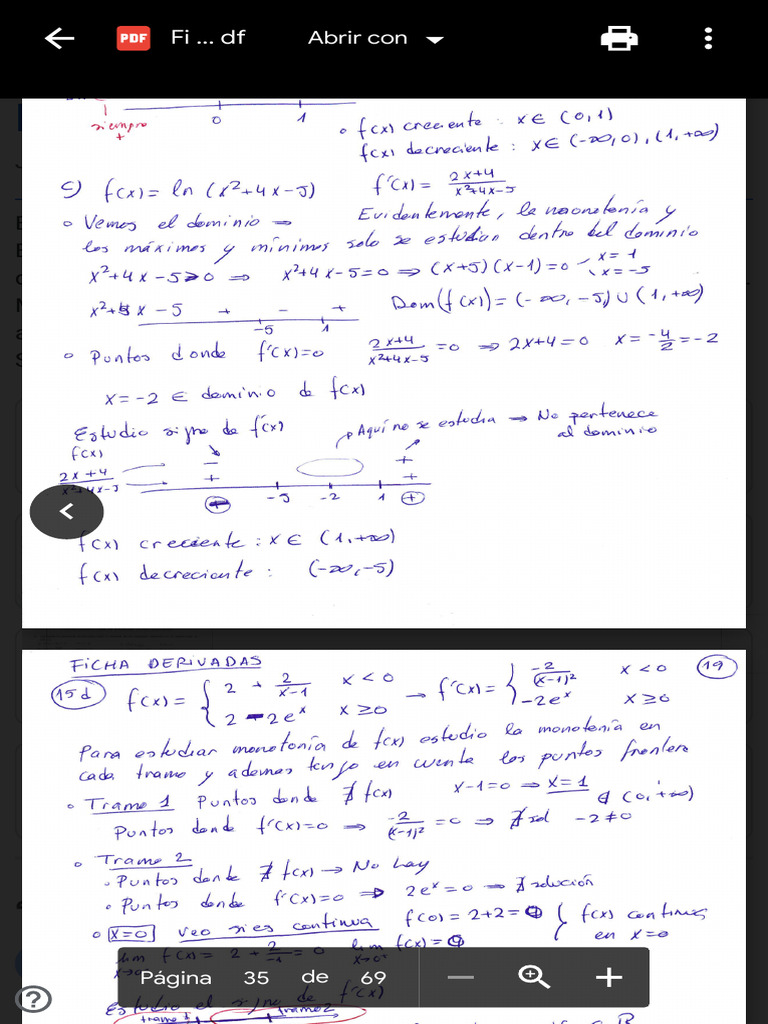 Fi ... df Abrir con
siempre
+
0 1
∘ f(x) creciente : x ∈ (0,1)
f(x) decreciente : x ∈ (-∞,0), (1,+∞)
c) f(x) = ln (x²+4x-5) f'(x) = 2x+4 / x²+4x-5
∘ Vemos el dominio ⇒ Evidentemente, la monotonía y
los máximos y mínimos solo se estudian dentro del dominio
x²+4x-5>0 ⇒ x²+4x-5=0 ⇒ (x+5)(x-1)=0 x=1
x=-5
x²+4x-5 + - +
-5 1
Dom(f(x)) = (-∞,-5) ∪ (1,+∞)
∘ Puntos donde f'(x)=0 2x+4 / x²+4x-5 =0 ⇒ 2x+4=0 x= -4/2 = -2
x=-2 ∈ dominio de f(x)
Estudio signo de f'(x) Aquí no se estudia → No pertenece
al dominio
f(x)
2x+4 / x²+4x-5 - + + +
-5 -2 1 +
f(x) creciente : x ∈ (1,+∞)
f(x) decreciente : (-∞,-5)
FICHA DERIVADAS 19
15d f(x) = { 2 + 2/x-1 x<0 → f'(x) = { -2/(x-1)² x<0
2-2eˣ x≥0 -2eˣ x≥0
Para estudiar monotonía de f(x) estudio la monotonía en
cada tramo y ademas tengo en cuenta los puntos frontera
∘ Tramo 1 Puntos donde ∄ f(x) x-1=0 ⇒ x=1 ∉ (0,+∞)
Puntos donde f'(x)=0 ⇒ -2/(x-1)² =0 ⇒ ∄ sol -2≠0
∘ Tramo 2
∘ Puntos donde ∄ f(x) → No hay
∘ Puntos donde f'(x)=0 ⇒ 2eˣ=0 ⇒ ∄ solución
∘ x=0 veo si es continua f(0)=2+2=0 { f(x) continua
en x=0
lim f(x) = 2 + 2/-1 = 0 lim f(x)=0
x→0
Estudio el signo de f'(x)
tramo 1 tramo 2
Página 35 de 69